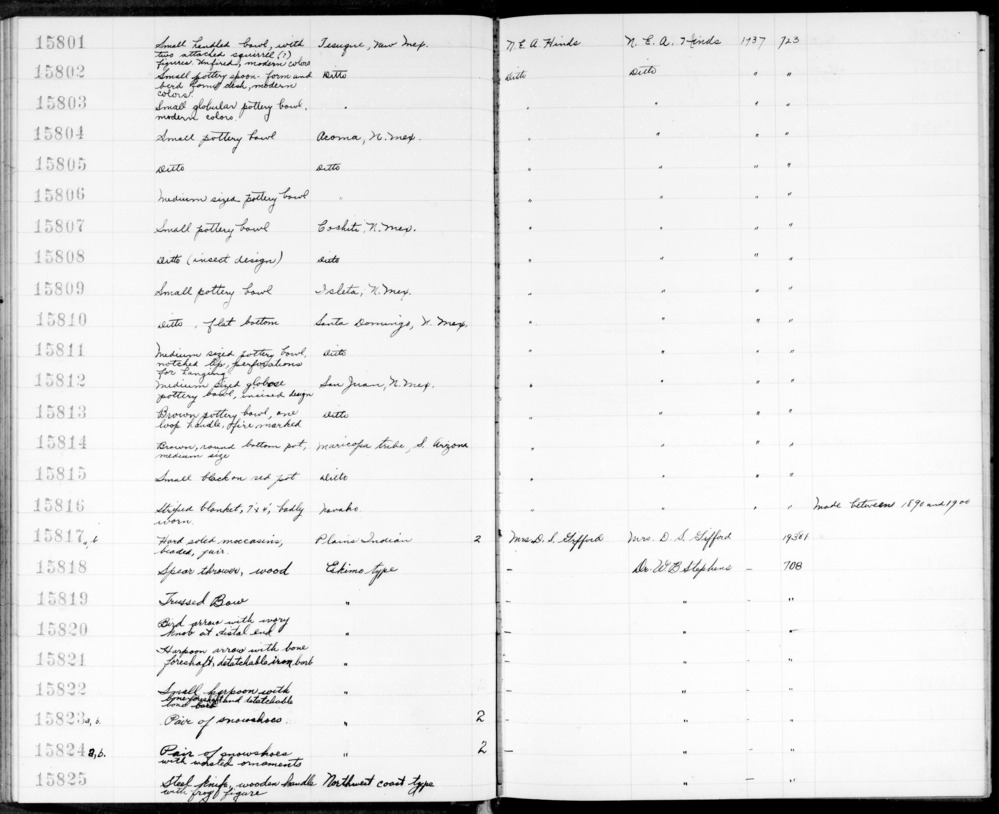 15801 Small handled bowl, with Tesuque, New Mex. N. E. A. Hinds N. E. A. Hinds 1937 723
two attached squirrel (?)
figures. Unfired, modern colors
15802 Small pottery spoon-form and Ditto Ditto Ditto " "
bird form dish, modern
colors.
15803 Small globular pottery bowl, " " " " "
modern colors.
15804 Small pottery bowl Acoma, N. Mex. " " " "
15805 Ditto Ditto " " " "
15806 Medium sized pottery bowl " " " " "
15807 Small pottery bowl Cochiti, N. Mex. " " " "
15808 Ditto (insect design) Ditto " " " "
15809 Small pottery bowl Isleta, N. Mex. " " " "
15810 Ditto, flat bottom Santo Domingo, N. Mex. " " " "
15811 Medium sized pottery bowl, Ditto " " " "
notched lip, perforations
for hanging
15812 Medium sized globose San Juan, N. Mex. " " " "
pottery bowl, incised design
15813 Brown pottery bowl, one Ditto " " " "
loop handle, fire marked
15814 Brown, round bottom pot, Maricopa tribe, S. Arizona " " " "
medium size
15815 Small black on red pot Ditto " " " "
15816 Striped blanket, 7'x4', badly Navaho. " " " " Made between 1890 and 1900
worn.
15817a, b Hard soled moccasins, Plains Indian 2 Mrs D. S. Gifford Mrs. D. S. Gifford
beaded, pair.
15818 Spear thrower, wood Eskimo type – Dr. W B Stephens – 708
15819 Trussed Bow " – " – "
15820 Bird arrow with ivory " – " – "
knob at distal end
15821 Harpoon arrow with bone " – " – "
foreshaft, detatchable iron barb
15822 Small harpoon with " – " – "
bone foreshaft and detatchable
bone barb
15823a, b. Pair of snowshoes. " 2 – " – "
15824a, b. Pair of snowshoes " 2 – " – "
with worsted ornaments
15825 Steel knife, wooden handle Northwest coast type " – "
with frog figure